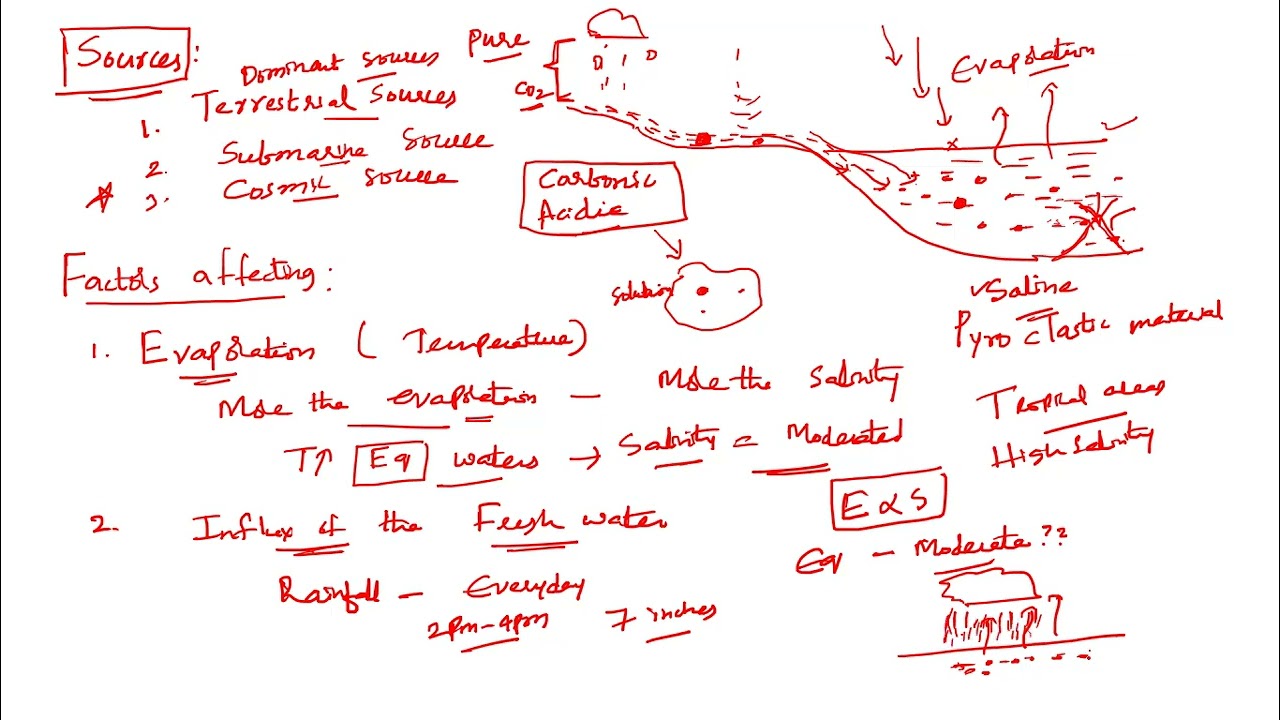 Sources:
Dominant sources
1. Terrestrial Sources
2. Submarine Source
3. Cosmic Source
Pure
CO2
Evaporation
Carbonic
Acidic
Solution
Saline
Pyro clastic material
Factors affecting:
1. Evaporation (Temperature)
More the evaporation – More the Salinity
T↑ Eq waters → Salinity = Moderated
Tropical areas
High Salinity
E ∝ S
2. Influx of the Fresh water
Eq – Moderate??
Rainfall – Everyday
2pm-4pm 7 inches